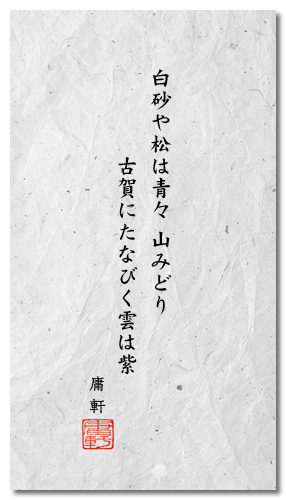 白砂や松は青々 山みどり
古賀にたなびく雲は紫
庸軒